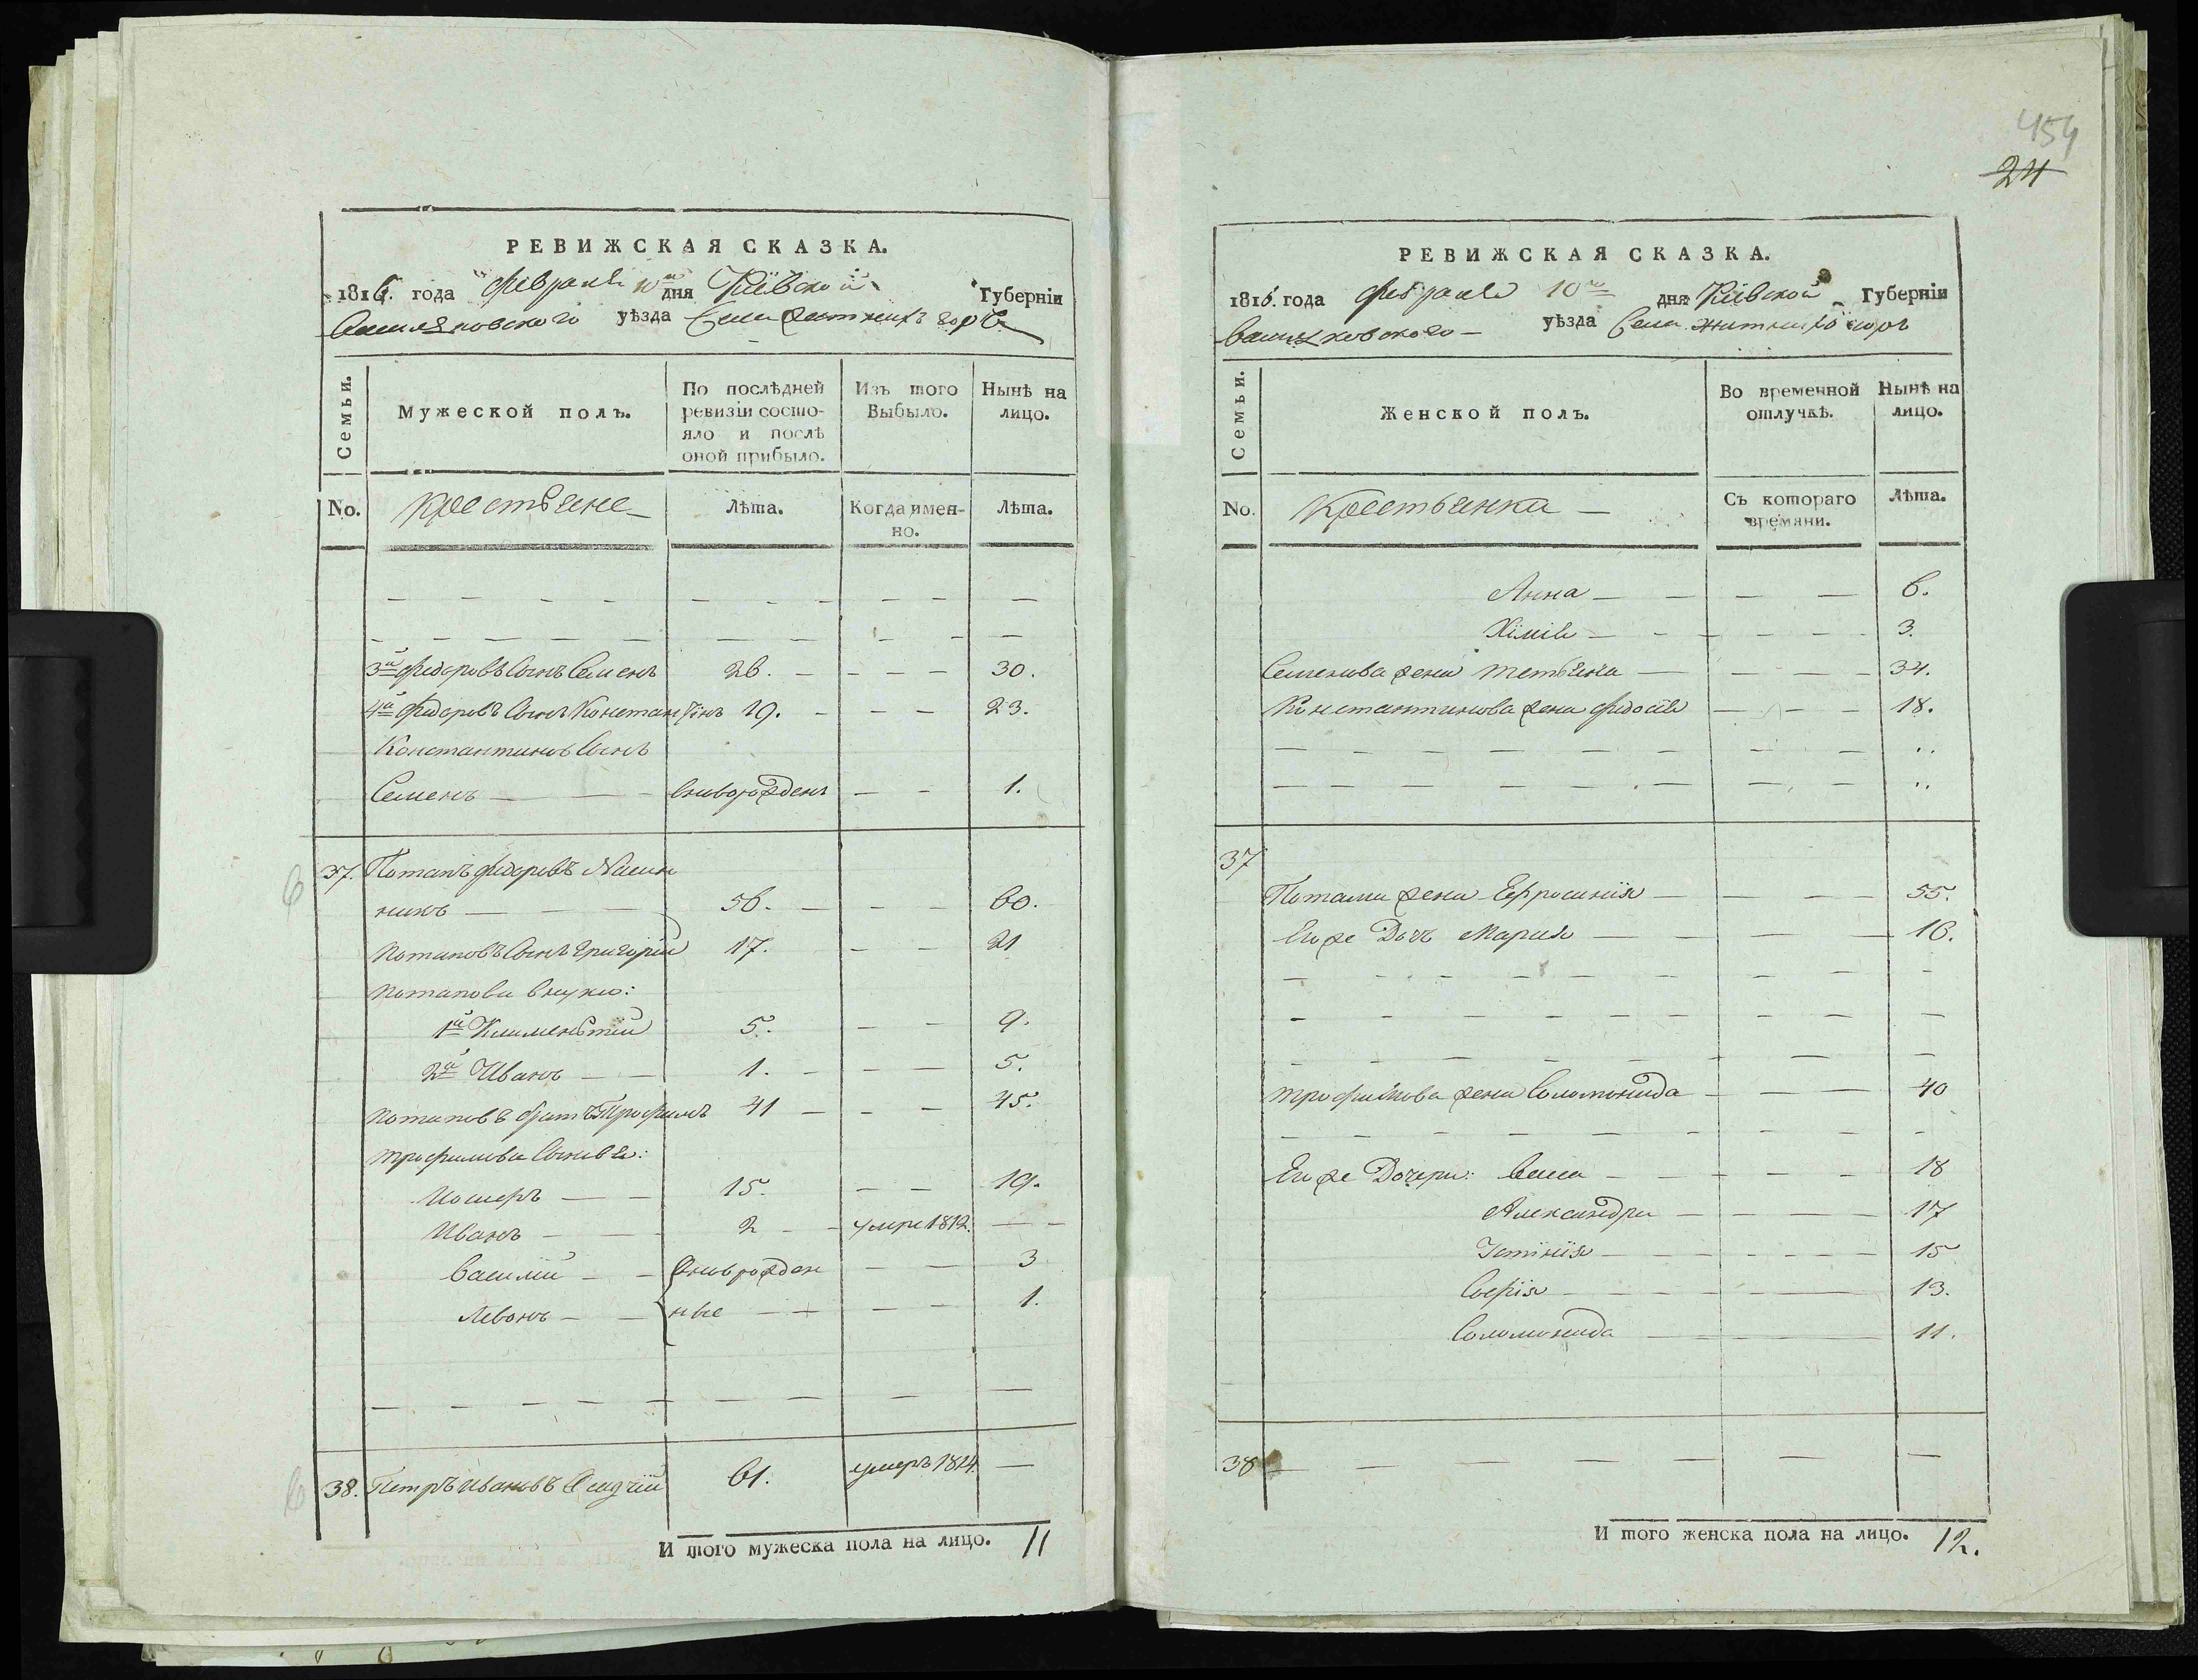 РЕВИЖСКАЯ СКАЗКА.
1816. года февраля 10го дня Кіевской Губерніи
Василковского уѣзда Села Житнихъ горъ
Семьи.
Мужеской полъ.
По послѣдней ревизіи состо-
яло и послѣ
оной прибыло.
Изъ того Выбыло.
Нынѣ на лицо.
No. Крестьяне
Лѣта.
Когда имен-
но.
Лѣта.
3й Федоровъ Сынъ Семенъ 26. 30.
4й Федоровъ Сынъ Константінъ 19. 23.
Константиновъ Сынъ
Семенъ вноворожденъ 1.
37. Потапъ Федоровъ
56. 60.
Потаповъ Сынъ Григорій 17. 21
Потапова внуки:
1й Климентій 5. 9.
2й Иванъ 1. 5.
Потаповъ братъ Трофимъ 41 45.
Трофимова Сыновья:
15. 19.
Иванъ 2 умре 1812.
Василій вноврожден 3
Левонъ ные 1.
38. Петръ Ивановъ Осадчій 61. умеръ 1814
И того мужеска пола на лицо. 11
454
24
РЕВИЖСКАЯ СКАЗКА.
1816. года февраля 10го дня Кіевской Губерніи
Василковского уѣзда Села Житнихъ горъ
Семьи.
Женской полъ.
Во временной отлучкѣ.
Нынѣ на лицо.
No. Крестьянки
Съ котораго
времяни.
Лѣта.
Анна 6.
3.
Семенова жена Тетьяна 34.
Константинова жена Федосія 18.
37
Потапа жена Ефросинія 55.
Его же Дочь Марія 16.
Трофимова жена Соломонида 40
Его же Дочери: 18
Александра 17
Устинія 15
Софія 13.
Соломонида 11.
38
И того женска пола на лицо. 12.